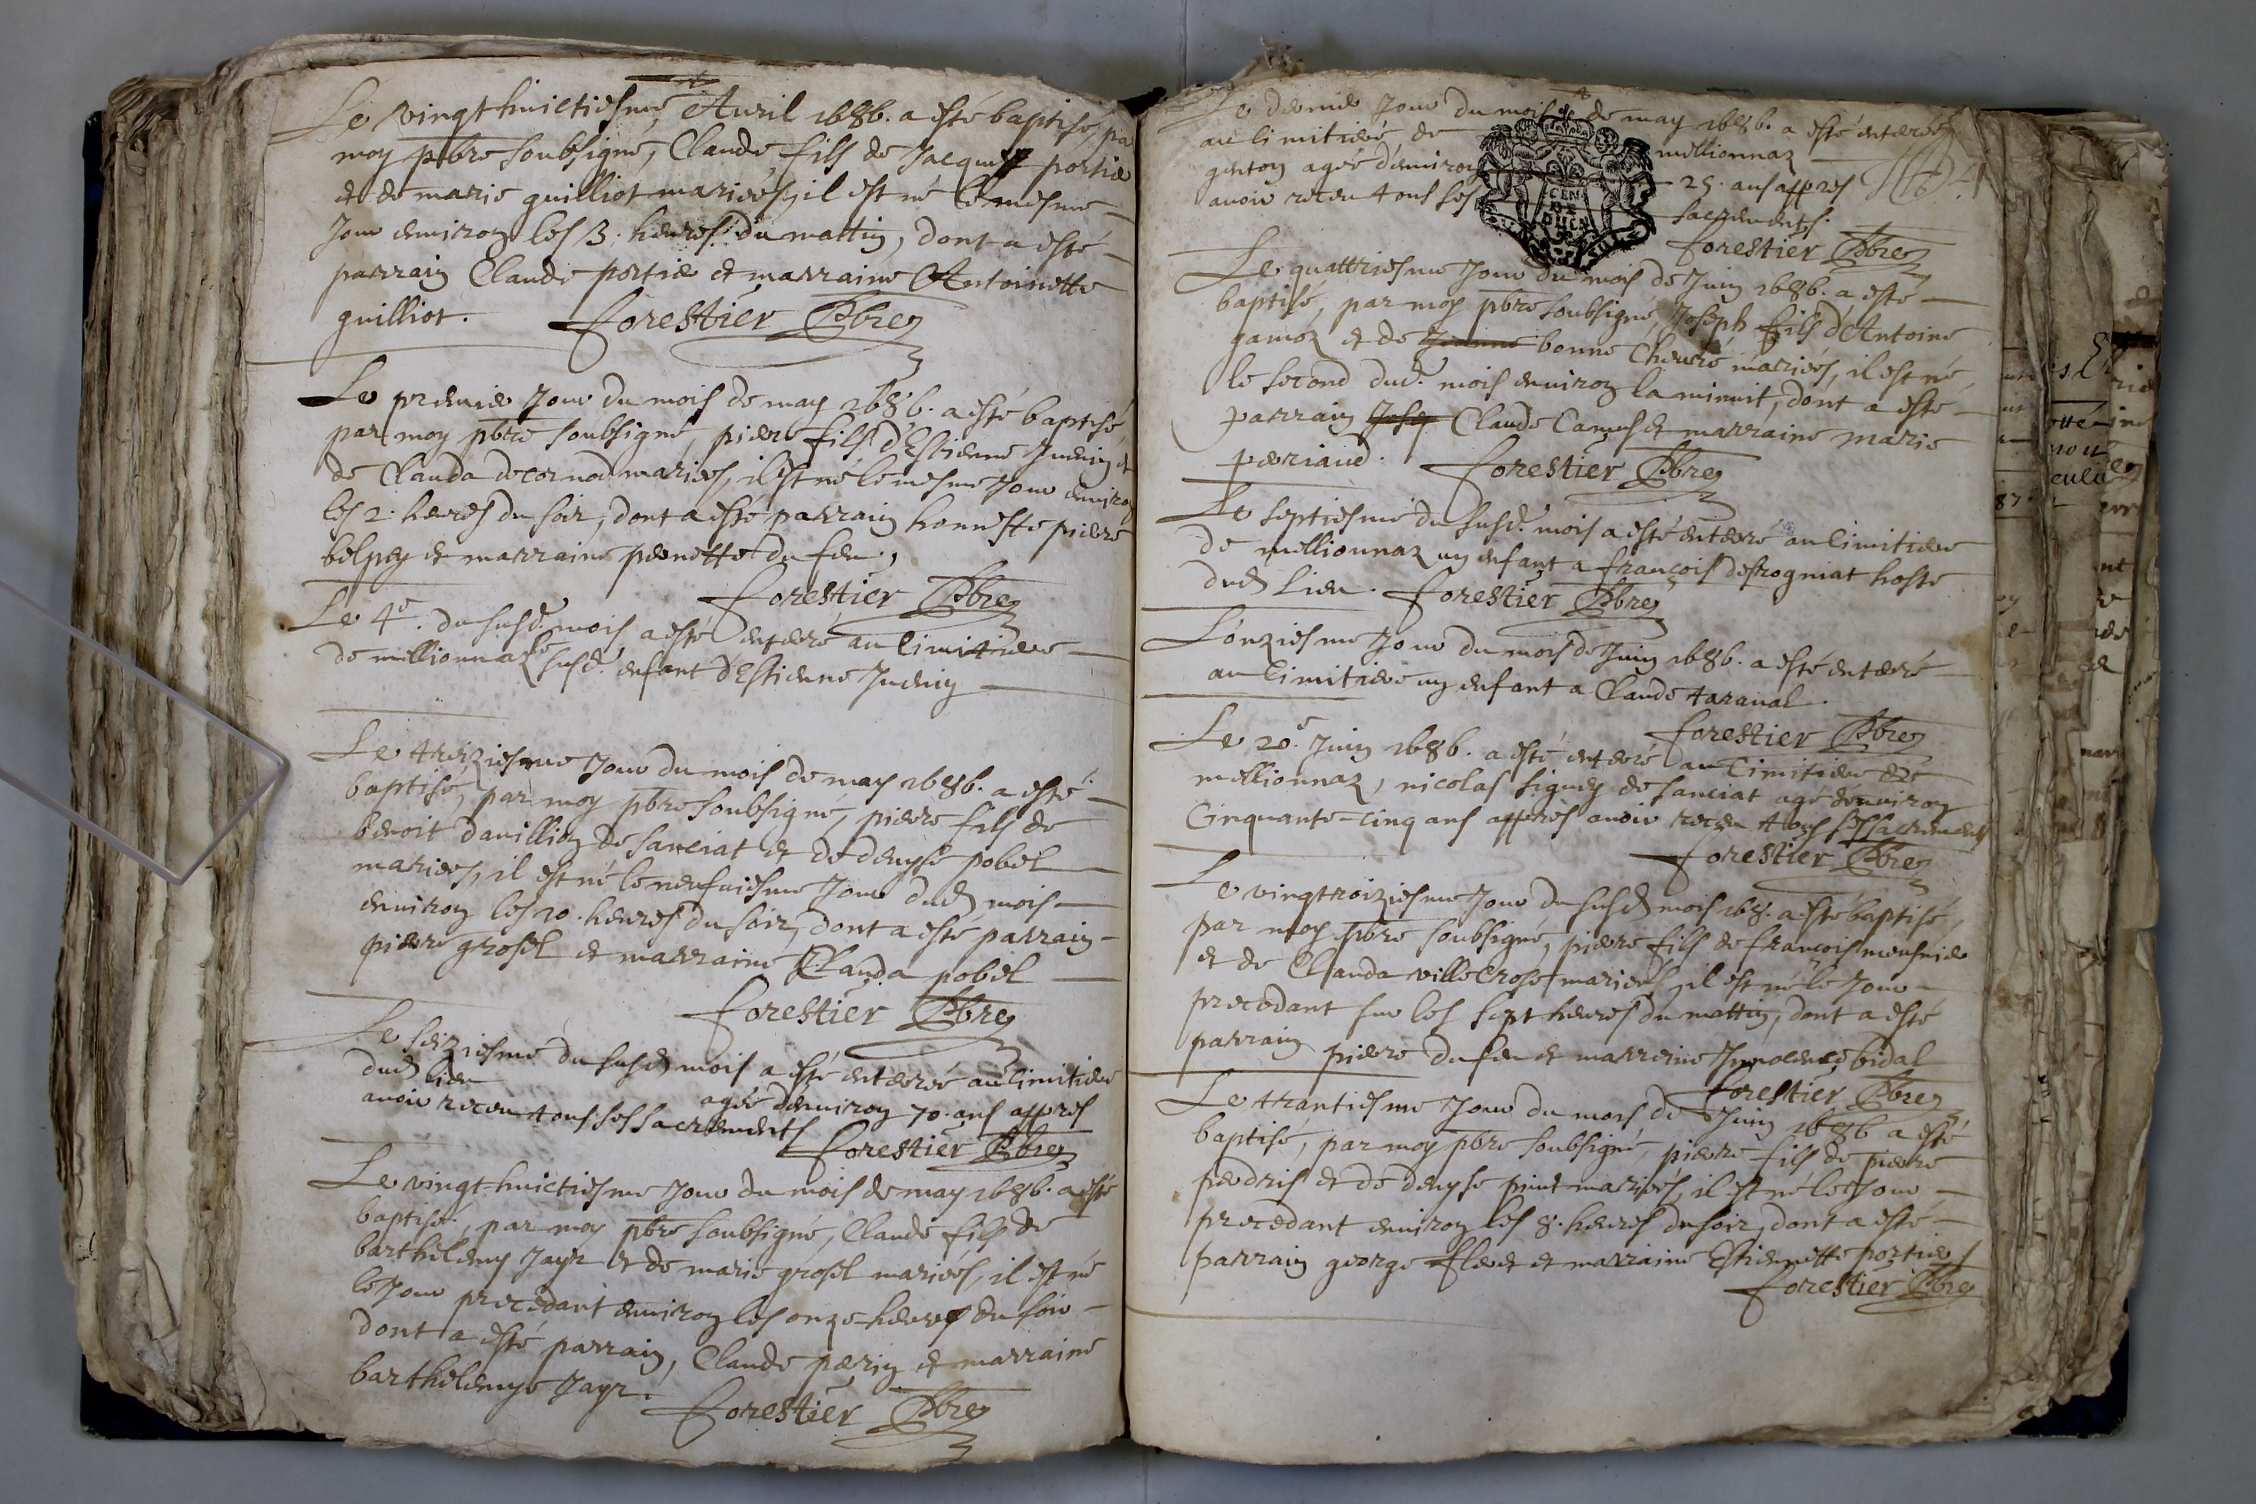 Le vingt huictiesme Auril 1686. a esté baptisé, pa
moy pbre soubsigné, Claude fils de Jacques portie
et de marie guilliot mariés, il est né le mesme
Jour enuiron les 3. heures du mattin, dont a esté
parrain Claude portie et marraine Antoinette
guilliot. forestier Pbre
Le premie Jour du mois de may 1686. a esté baptisé,
par moy pbre soubsigné, pierre fils d'Estienne Juenin et
de Clauda decornod mariés, il est né le mesme Jour enuiron
les 2. heures du soir, dont a esté parrain honneste pierre
belpey et marraine pernette du feu.
forestier Pbre
Le 4e. du susd. mois a esté enterré au Cimitiere
de millionnaz le susd. enfant d'Estienne Juenin
Le treiziesme Jour du mois de may 1686. a esté
baptisé, par moy pbre soubsigné, pierre fils de
benoit dauillion de sanciat et de denyse pobel
mariés, il est né le neufuiesme Jour dud. mois
enuiron les 10. heures du soir, dont a esté parrain
pierre grosel et marraine Clauda pobel
forestier Pbre
Le seiziesme du susd. mois a esté enterrée au Cimitiere
dud. lieu
agée d'enuiron 70. ans appres
auoir receu tous ses sacrements
forestier Pbre
Le vingt-huictiesme Jour du mois de may 1686. a esté
baptisé, par moy pbre soubsigné, Claude fils de
barthelemy Jayr et de marie grosel mariés, il est né
le Jour precedant enuiron les onze heures du soir
dont a esté parrain, Claude perrin et marraine
barthelemye Jayr.
forestier Pbre
Le dernie Jour du mois de may 1686. a esté enterrée
au Cimitiere de millionnaz
genton agée d'enuiron 25. ans appres
auoir receu tous ses sacrements.
forestier Pbre
Le quattriesme Jour du mois de Juin 1686. a esté
baptisé, par moy pbre soubsigné, Joseph fils d'Antoine
gamoz et de bonne Cheuré mariés, il est né
le second dud. mois enuiron la minuit, dont a esté
parrain Claude Camus et marraine marie
perriaud. forestier Pbre
Le septiesme du susd. mois a esté enterré au Cimitiere
de millionnaz un enfant a françois desrogniat hoste
dud. lieu. forestier Pbre
L'onziesme Jour du mois de Juin 1686. a esté enterré
au Cimitiere un enfant a Claude taraual.
forestier Pbre
Le 20e. Juin 1686. a esté enterré au Cimitiere de
millionnaz, nicolas de sanciat agé d'enuiron
Cinquante-cinq ans appres auoir receu tous ses sacrements
forestier Pbre
Le vingtroiziesme Jour du susd. mois 168. a esté baptisé,
par moy pbre soubsigné, pierre fils de françois meusnie
et de Clauda villecrose mariés, il est né le Jour
precedant sur les sept heures du mattin, dont a esté
parrain pierre du feu et marreine Innocence bidal
forestier Pbre
Le trantiesme Jour du mois de Juin 1686 a esté
baptisé, par moy pbre soubsigné, pierre fils de pierre
perdris et de denyse mariés, il est né le Jour
precedant enuiron les 8. heures du soir, dont a esté
parrain george et marraine Estiennette portie
forestier Pbre